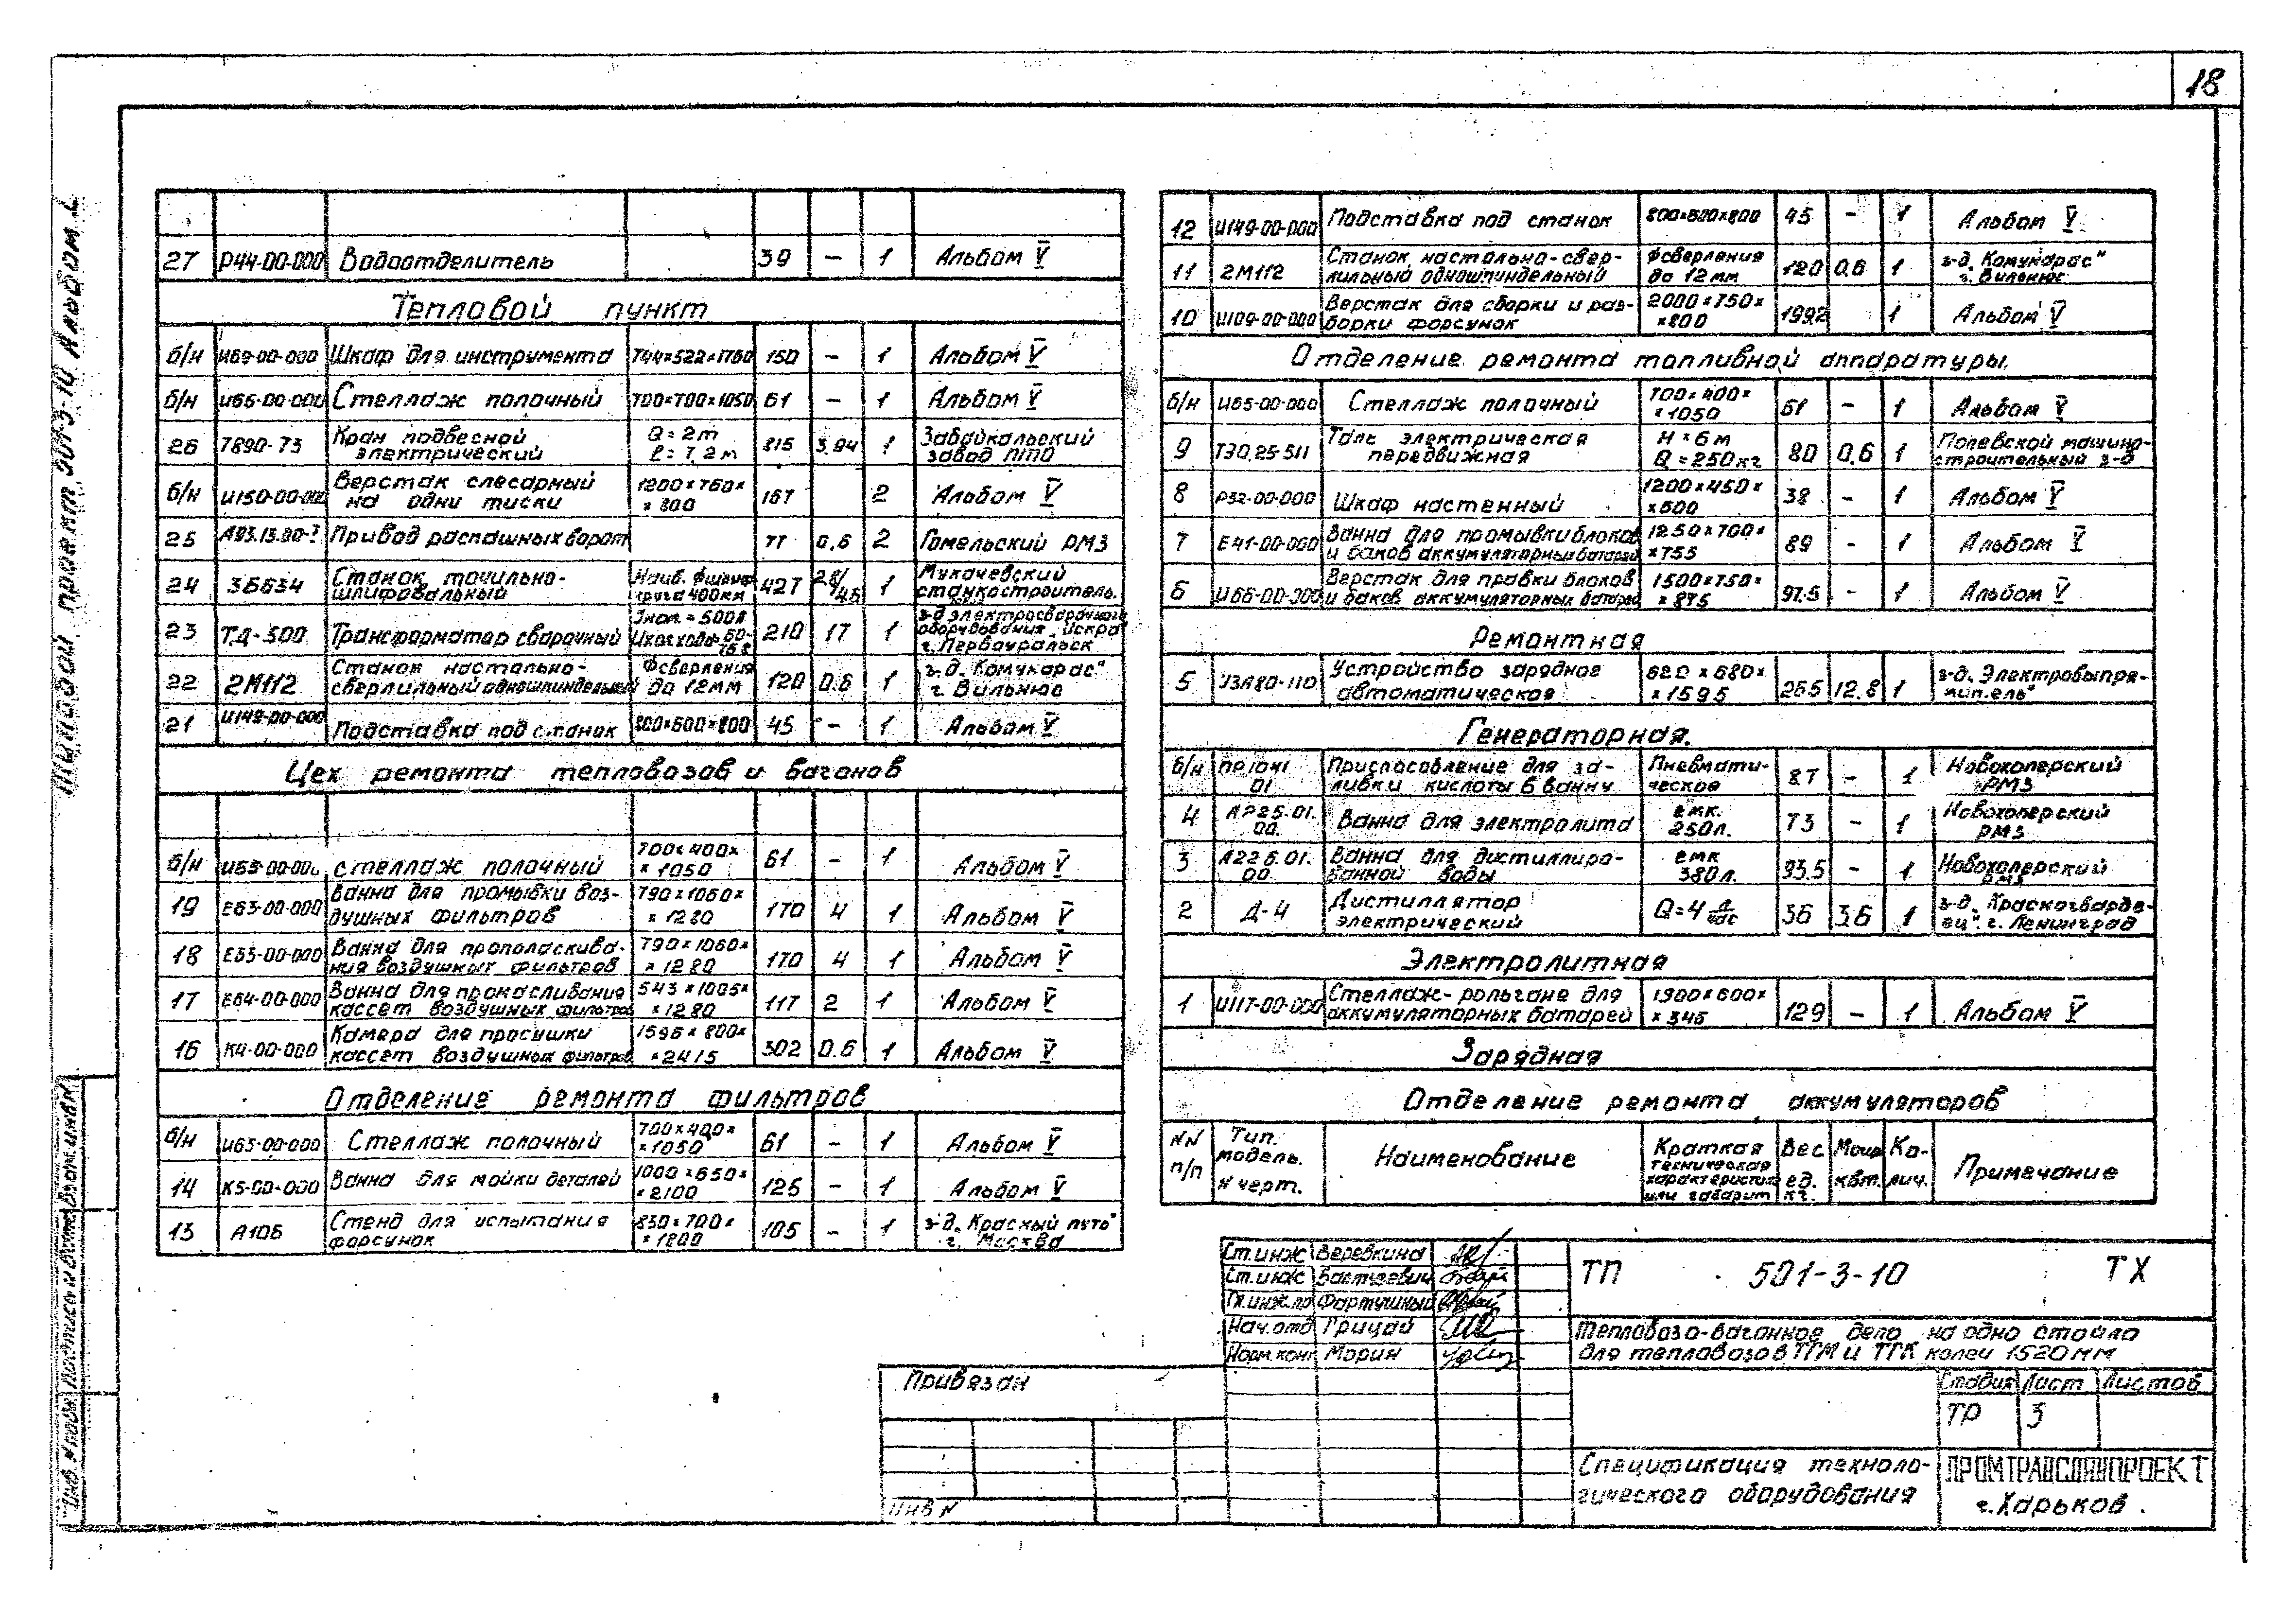 18
Типовой проект 501-3-10 Альбом I
27 Р44-00-000 Водоотделитель 39 – 1 Альбом V
Тепловой пункт
б/н И69-00-000 Шкаф для инструмента 744×522×1760 150 – 1 Альбом V
б/н И66-00-000 Стеллаж полочный 700×700×1050 61 – 1 Альбом V
26 7890-73 Кран подвесной электрический Q=2т ℓ=7,2м 815 3,94 1 Забайкальский завод ППО
б/н И150-00-000 Верстак слесарный на одни тиски 1200×760××800 167 2 Альбом V
25 Привод распашных ворот 77 0,6 2 Гомельский РМЗ
24 3Б634 Станок точильно-шлифовальный 427 2,8/4,5 1 Мукачевский станкостроитель.
23 ТД-500 Трансформатор сварочный 210 17 1 з-д электросварочного оборудования „Искра" г. Первоуральск
22 2М112 Станок настольно-сверлильный одношпиндельный Ф сверления до 12мм 120 0.6 1 з-д. „Комунарас" г. Вильнюс
21 И149-00-000 Подставка под станок 800×600×800 45 – 1 Альбом V
Цех ремонта тепловозов и вагонов
б/н И65-00-000 стеллаж полочный 700×400××1050 61 – 1 Альбом V
19 Е63-00-000 Ванна для промывки воздушных фильтров 790×1060××1280 170 4 1 Альбом V
18 Е63-00-000 Ванна для прополаскивания воздушных фильтров 790×1060××1280 170 4 1 Альбом V
17 Е64-00-000 Ванна для промасливания кассет воздушных фильтров 543×1005××1280 117 2 1 Альбом V
16 К4-00-000 Камера для просушки кассет воздушных фильтров 1596×800××2415 302 0.6 1 Альбом V
Отделение ремонта фильтров
б/н И65-00-000 Стеллаж полочный 700×400××1050 61 – 1 Альбом V
14 К5-00-000 Ванна для мойки деталей 1000×650××2100 126 – 1 Альбом V
13 А106 Стенд для испытания форсунок 850×700××1800 105 – 1 з-д. „Красный путь" г. Москва
12 И149-00-000 Подставка под станок 800×600×800 45 – 1 Альбом V
11 2М112 Станок настольно-сверлильный одношпиндельный Ф сверления до 12мм 120 0.6 1 з-д. „Комунарас" г. Вильнюс
10 И109-00-000 Верстак для сборки и разборки форсунок 2000×750××800 199,2 1 Альбом V
Отделение ремонта топливной аппаратуры.
б/н И65-00-000 Стеллаж полочный 700×400××1050 61 – 1 Альбом V
9 ТЭ0,25-511 Таль электрическая передвижная Н=6м Q=250кг 80 0,6 1 Полевской машиностроительный з-д
8 Р32-00-000 Шкаф настенный 1200×450××600 38 – 1 Альбом V
7 Е41-00-000 Ванна для промывки блоков и баков аккумуляторных батарей 1250×700××755 89 – 1 Альбом V
6 И66-00-000 Верстак для правки блоков и баков аккумуляторных батарей 1500×750××875 97.5 – 1 Альбом V
Ремонтная
5 УЗА80-110 Устройство зарядное автоматическое 620×680××1595 265 12.8 1 з-д. „Электровыпрямитель"
Генераторная.
б/н ПР1041 01 Приспособление для заливки кислоты в ванну Пневматическое 87 – 1 Новохоперский РМЗ
4 А225.01.00. Ванна для электролита емк. 250л. 73 – 1 Новохоперский РМЗ
3 А226.01.00. Ванна для дистиллированной воды емк 380л. 93.5 – 1 Новохоперский РМЗ
2 Д-4 Дистиллятор электрический Q=4 л/час 36 3.6 1 з-д. „Красногвардеец". г. Ленинград
Электролитная
1 И117-00-000 Стеллаж-рольганг для аккумуляторных батарей 1300×600××346 129 – 1 Альбом V
Зарядная
Отделение ремонта аккумуляторов
NN п/п Тип. модель. N черт. Наименование Краткая техническая характеристика или габарит Вес ед. кг. Мощ квт. Ко-лич. Примечание
Ст.инж Веревкина
Ст.инж
Гл.инж.пр Фартушный
Нач.отд Грицай
Норм.конт Морин
ТП 501-3-10 ТХ
Тепловозо-вагонное депо на одно стойло
для тепловозов ТГМ и ТГК колеи 1520мм
Стадия Лист Листов
ТР 3
Спецификация техноло-
гического оборудования
ПРОМТРАНСНИИПРОЕКТ
г.Харьков.
Привязан
ИНВ N
Инв. N подл. Подпись и дата Взам.инв.N